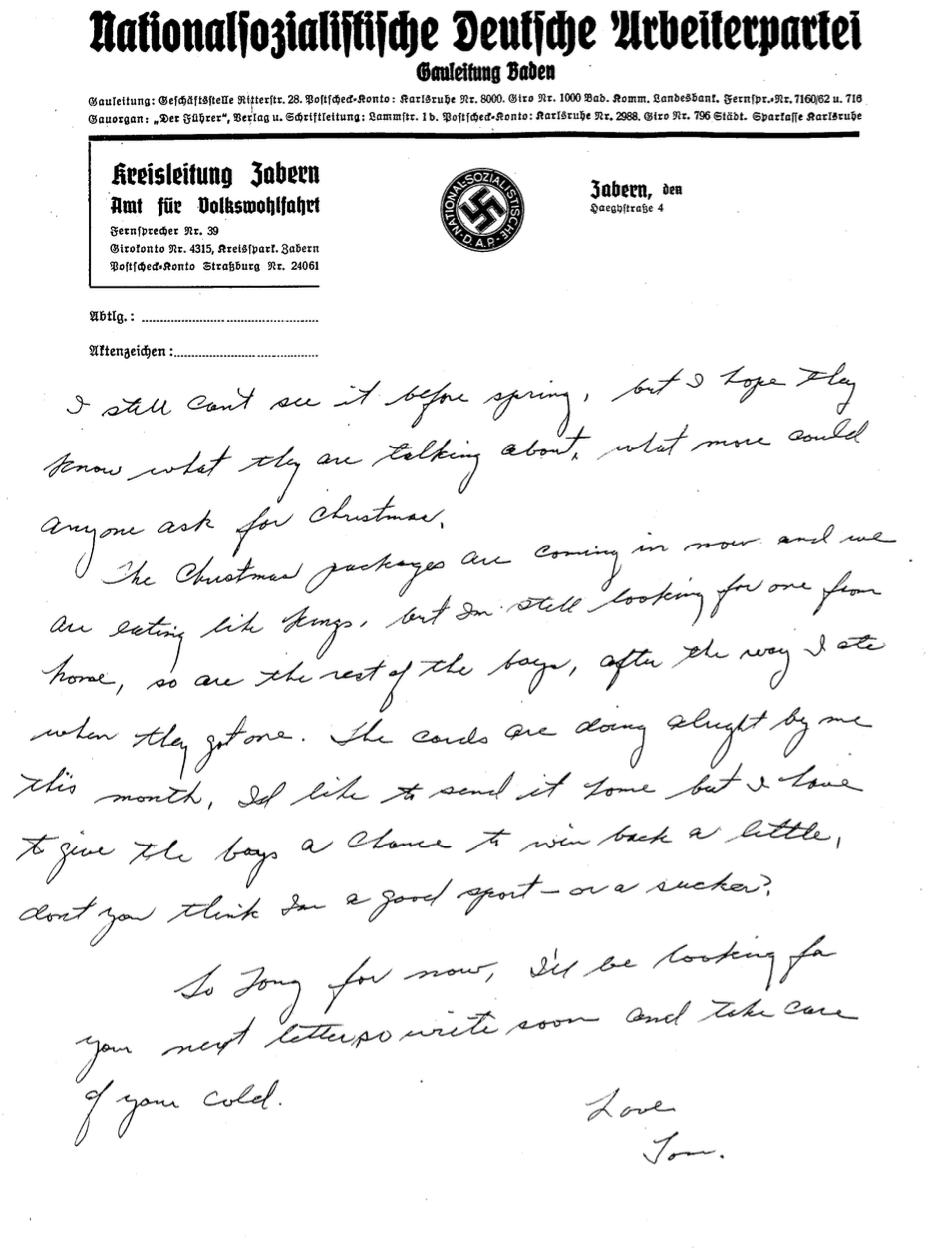 Nationalsozialistische Deutsche Arbeiterpartei
Gauleitung Baden
Gauleitung: Geschäftsstelle Ritterstr. 28. Postscheck-Konto: Karlsruhe Nr. 8000. Giro Nr. 1000 Bad. Komm. Landesbank. Fernspr.-Nr. 7160/62 u. 716
Gauorgan: „Der Führer“, Verlag u. Schriftleitung: Lammstr. 1 b. Postscheck-Konto: Karlsruhe Nr. 2988. Giro Nr. 796 Städt. Sparkasse Karlsruhe
Kreisleitung Zabern
Amt für Volkswohlfahrt
Fernsprecher Nr. 39
Girokonto Nr. 4315, Kreisspark. Zabern
Postscheck-Konto Straßburg Nr. 24061
NATIONAL-SOZIALISTISCHE D.A.P.
Zabern, den
Haegystraße 4
Abtlg.:
Aktenzeichen:
I still can't see it before spring, but I hope they
know what they are talking about, what more could
anyone ask for Christmas.
The Christmas packages are coming in now and we
are eating like kings, but I'm still looking for one from
home, so are the rest of the boys, after the way I ate
when they got one. The cards are doing alright by me
this month, I'd like to send it home but I have
to give the boys a chance to win back a little,
don't you think I'm a good sport - or a sucker?
So long for now, I'll be looking for
your next letter, so write soon and take care
of your cold.
Love
Tom.